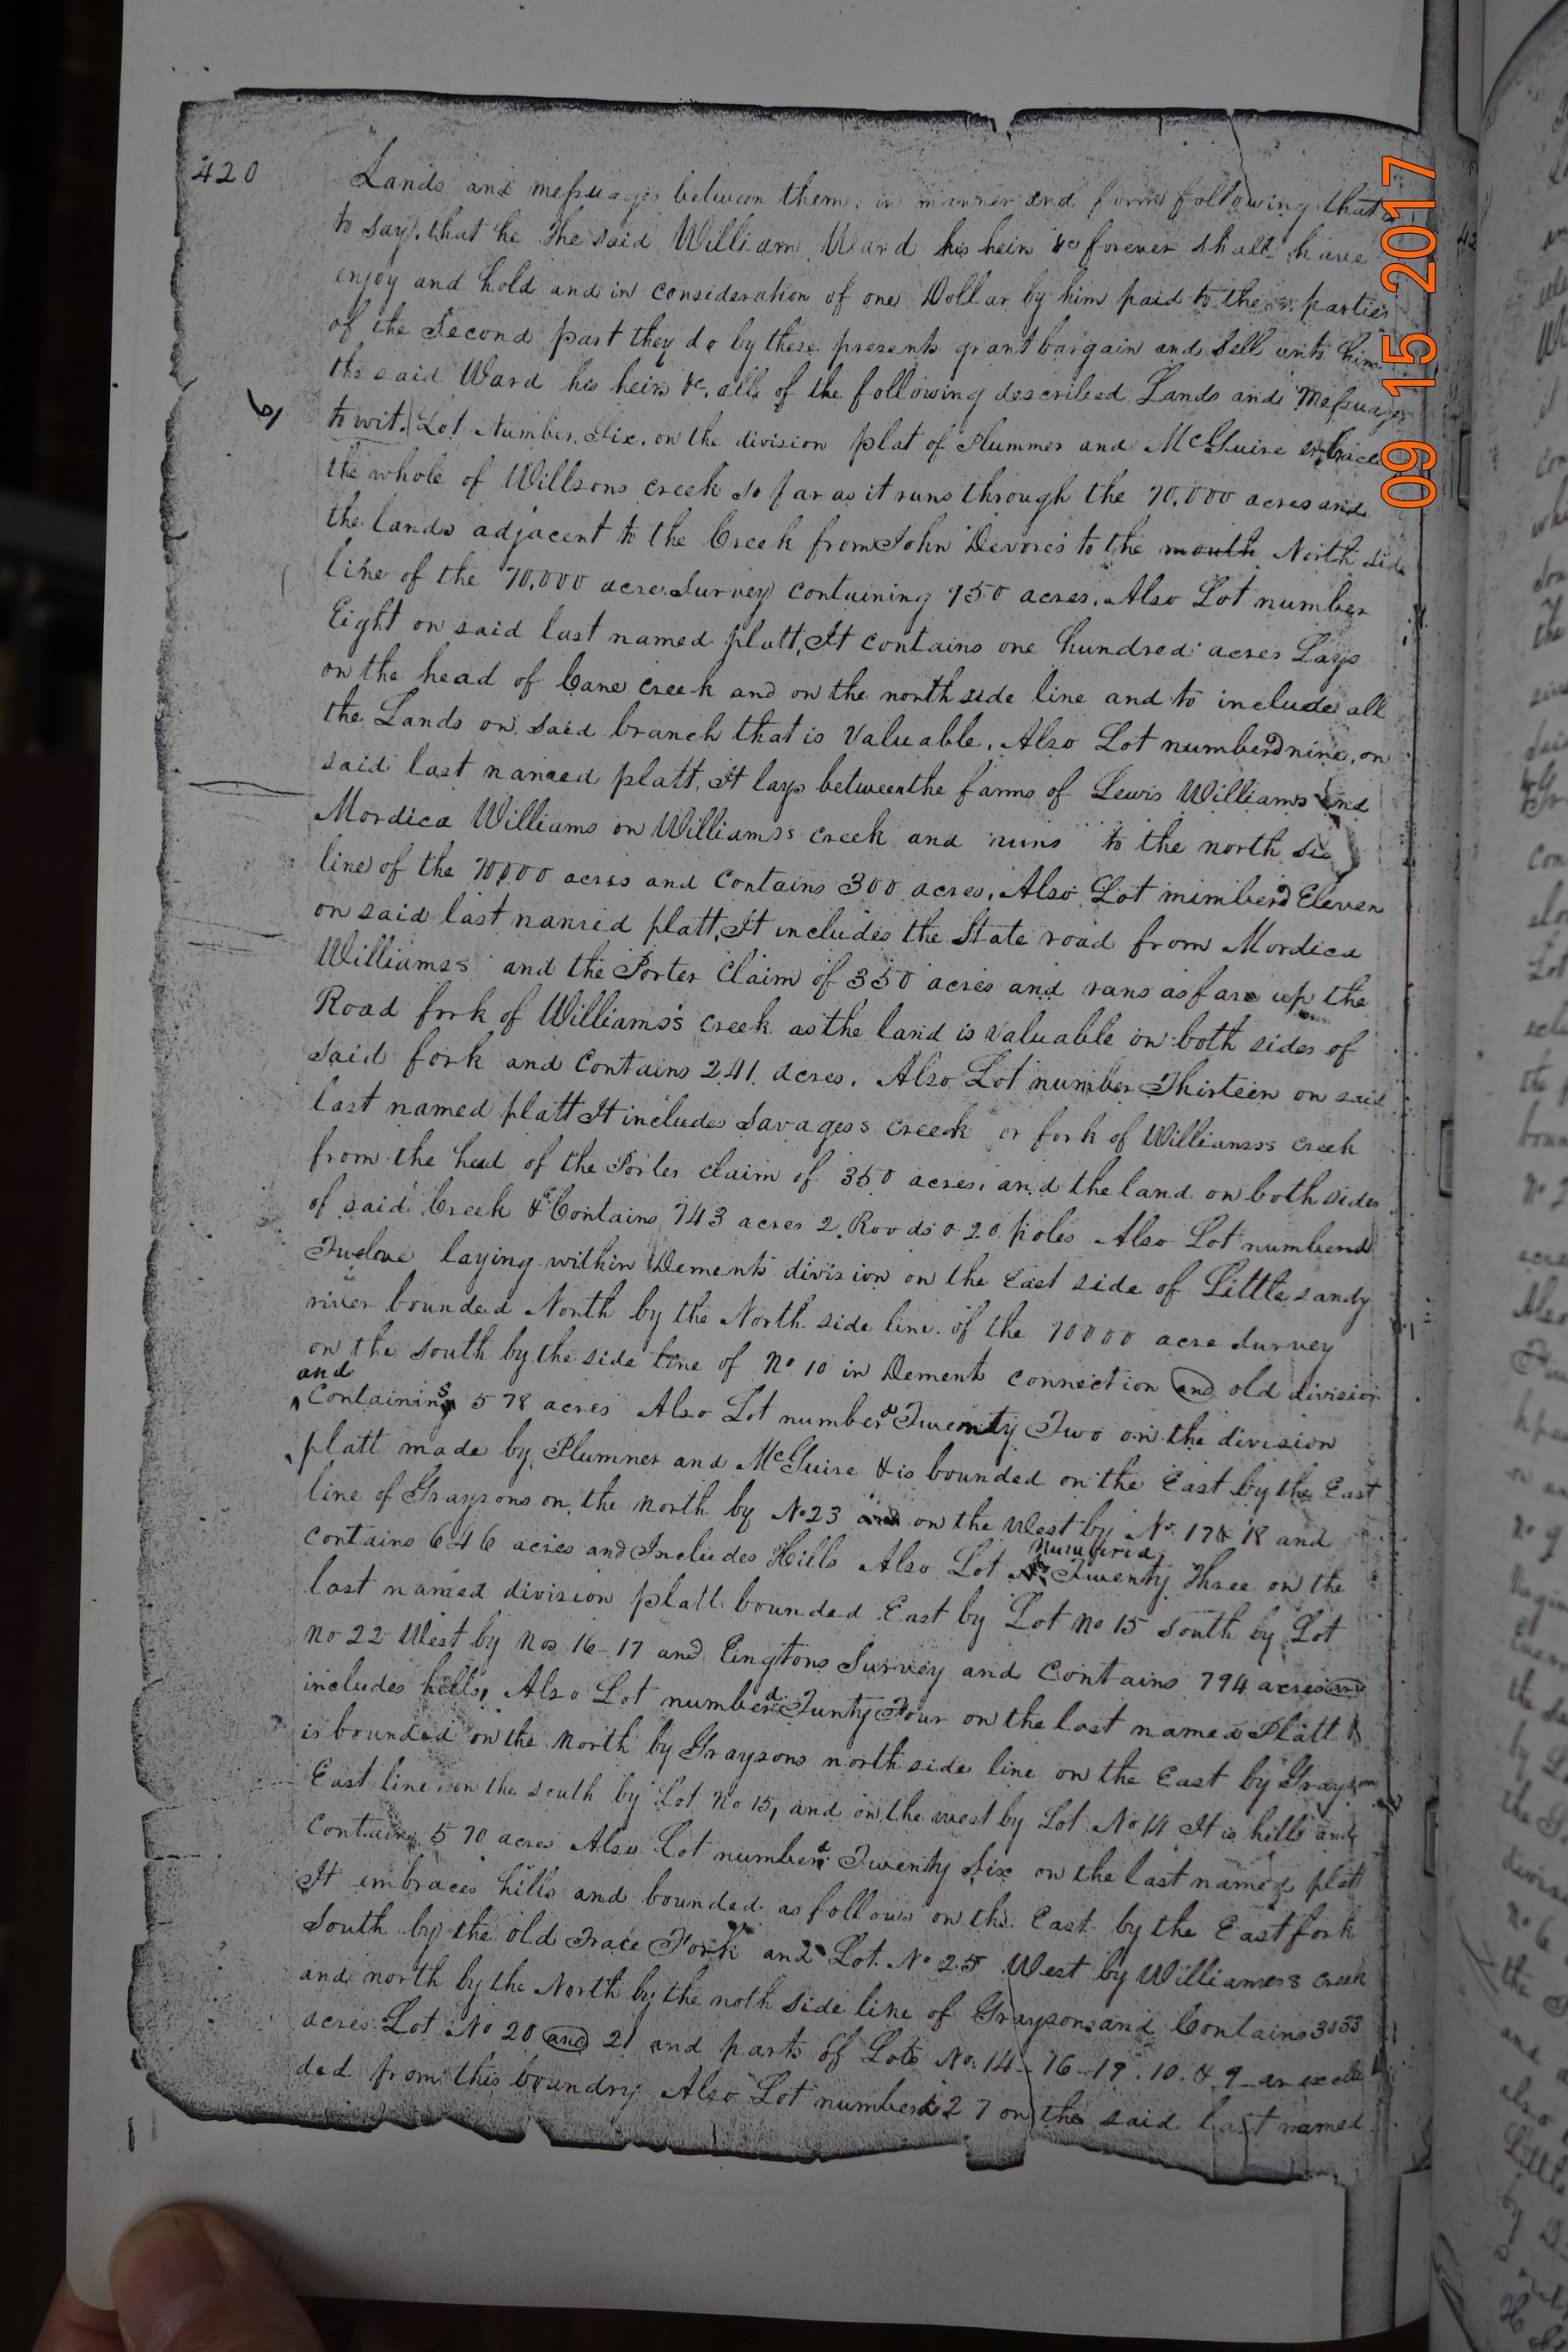 420
Lands and messuages between them, in manner and form following that is
to say, that he the said William Ward his heirs &c forever shall have
enjoy and hold and in consideration of one Dollar by him paid to the parties
of the Second part they do by these presents grant bargain and Sell unto him
the said Ward his heirs &c, all of the following described Lands and Messuages
to wit. Lot Number Six, on the division plat of Plummer and McGuire embraces
the whole of Willsons creek so far as it runs through the 70,000 acres and
the lands adjacent to the Creek from John Devores to the mouth North side
line of the 70,000 acre Survey containing 750 acres. Also Lot number
Eight on said last named platt, It contains one hundred acres Lays
on the head of Cane creek and on the north side line and to include all
the Lands on said branch that is Valuable. Also Lot numberd nine, on
said last named platt, It lays between the farms of Lewis Williams and
Mordica Williams on Williamss creek and runs to the north
line of the 70,000 acres and contains 300 acres. Also Lot numberd Eleven
on said last named platt, It includes the State road from Mordica
Williamss and the Porter Claim of 350 acres and runs as far up the
Road fork of Williams's creek as the land is valuable on both sides of
said fork and contains 241 acres. Also Lot number Thirteen on said
last named platt It includes Savagess creek or fork of Williamss creek
from the head of the Porter claim of 350 acres, and the land on both sides
of said Creek & Contains 743 acres 2 Roods 020 poles Also Lot numberd
Twelve laying within Dements division on the East side of Little sandy
river bounded North by the North side line of the 70000 acre Survey
on the South by the side line of No 10 in Dements connection and old division
and
Contains 578 acres Also Lot numberd Twenty Two on the division
platt made by Plummer and McGuire & is bounded on the East by the East
line of Graysons on the North by No 23 and on the West by No. 17 & 18 and
numberd
contains 646 acres and Includes Hills Also Lot Twenty Three on the
last named division platt bounded East by Lot No 15 South by Lot
No 22 West by Nos 16-17 and Eingtons Survey and Contains 794 acres and
includes hills, Also Lot numberd Tunty Four on the last named Platt &
is bounded on the North by Graysons north side line on the East by Graysons
East line on the South by Lot No 15, and on the west by Lot No 14 It is hills and
Contains 570 acres Also Lot numberd Twenty Six on the last named platt
It embraces hills and bounded as follows on the East by the East fork
South by the old Trace Fork and Lot No 25 West by Williamss creek
and north by the North by the noth side line of Graysons and Contains 3033
acres Lot No 20 and 21 and parts of Lots No. 14-16-19.10. & 9 an exclu
ded from this boundry Also Lot numberd 27 on the said last named
09 15 2017